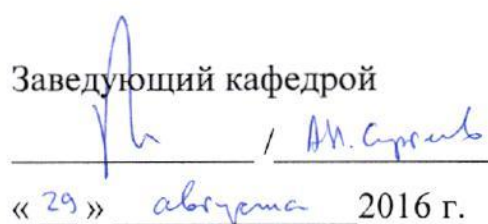 Заведующий кафедрой
/ А.Н.
« 29 » августа 2016 г.